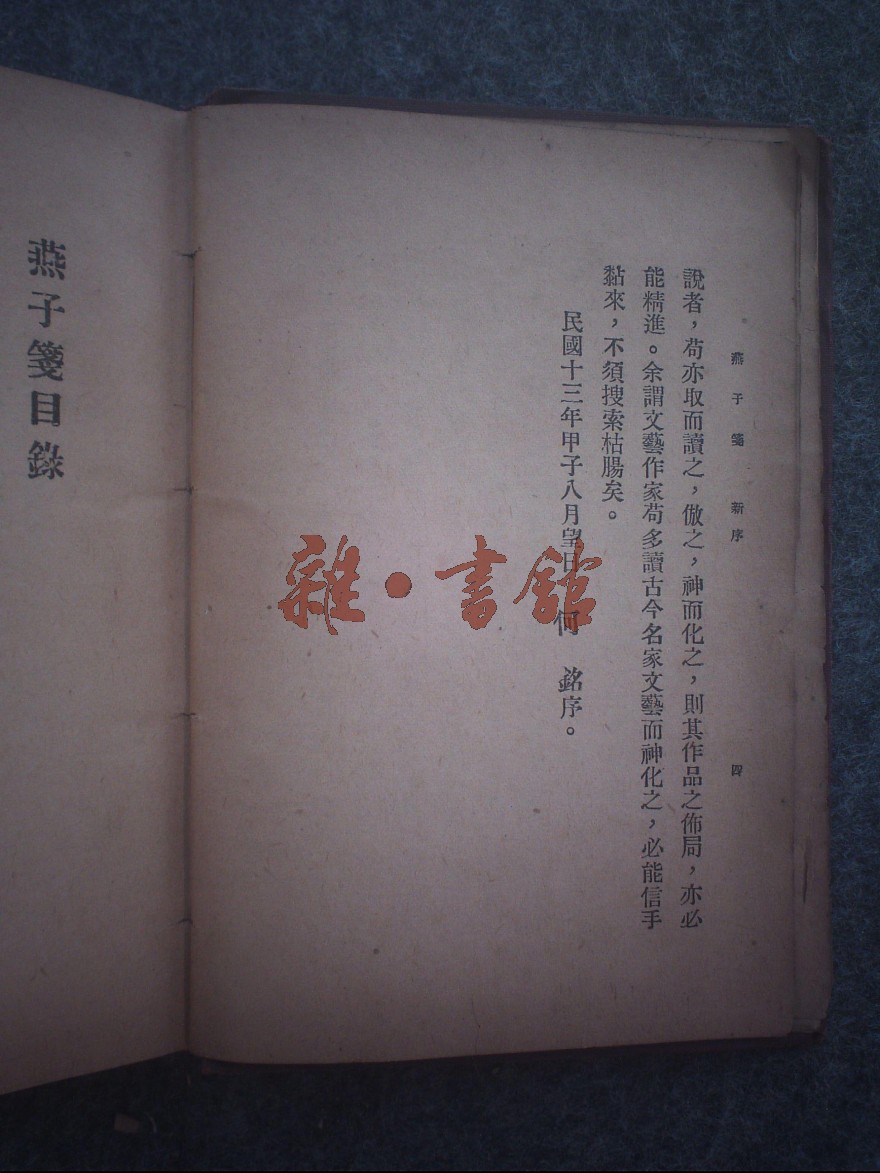 燕子箋 新序 四
說者，苟亦取而讀之，倣之，神而化之，則其作品之佈局，亦必
能精進。余謂文藝作家苟多讀古今名家文藝而神化之，必能信手
黏來，不須搜索枯腸矣。
民國十三年甲子八月望日 何 銘序。
燕子箋目錄
雜·書館